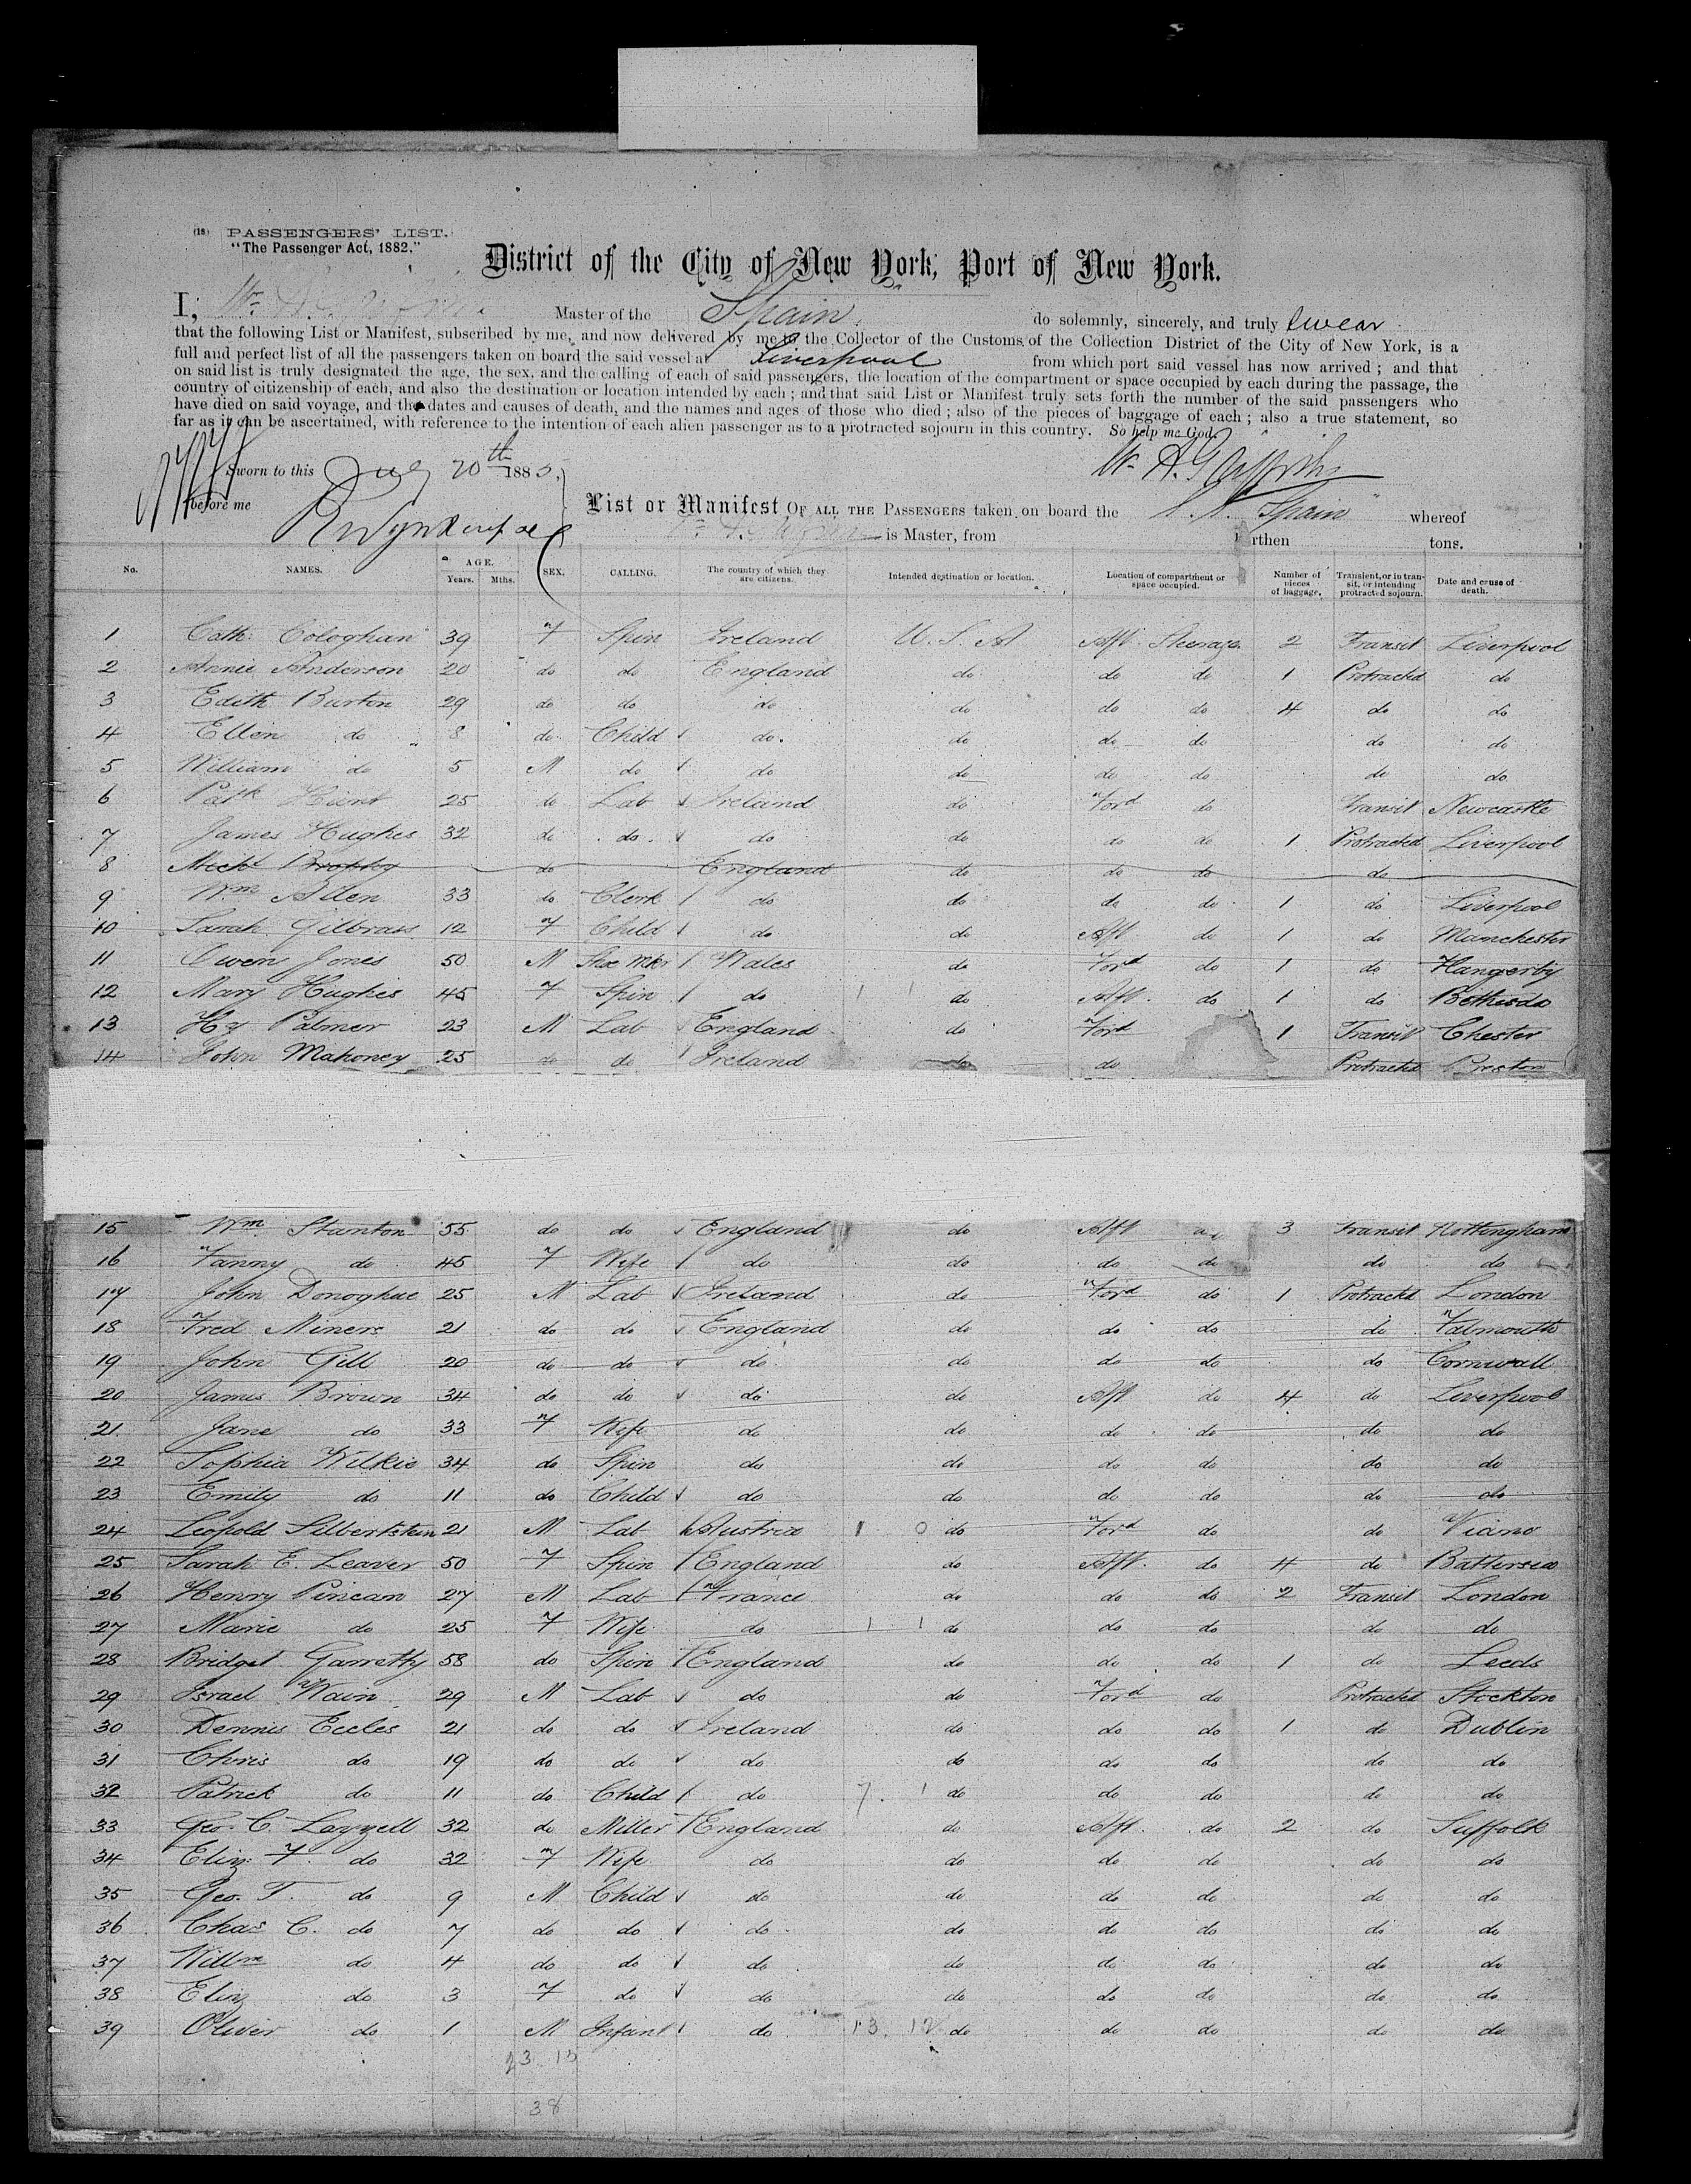 (18) PASSENGERS' LIST.
"The Passenger Act, 1882."
District of the City of New York, Port of New York.
I, Master of the Spain do solemnly, sincerely, and truly swear
that the following List or Manifest, subscribed by me, and now delivered by me to the Collector of the Customs of the Collection District of the City of New York, is a
full and perfect list of all the passengers taken on board the said vessel at Liverpool from which port said vessel has now arrived; and that
on said list is truly designated the age, the sex, and the calling of each of said passengers, the location of the compartment or space occupied by each during the passage, the
country of citizenship of each, and also the destination or location intended by each; and that said List or Manifest truly sets forth the number of the said passengers who
have died on said voyage, and the dates and causes of death, and the names and ages of those who died; also of the pieces of baggage of each; also a true statement, so
far as it can be ascertained, with reference to the intention of each alien passenger as to a protracted sojourn in this country. So help me God.
Sworn to this 20th 188
before me
List or Manifest OF ALL THE PASSENGERS taken on board the S.S. Spain whereof
is Master, from rthen tons.
No. NAMES. AGE. Years. Mths. SEX. CALLING. The country of which they are citizens. Intended destination or location. Location of compartment or space occupied. Number of pieces of baggage. Transient, or in transit, or intending protracted sojourn. Date and cause of death.
1 Cath: Cologhan 39 F Spin Ireland U.S.A Aft Steerage 2 Transit Liverpool
2 Annie Anderson 20 do do England do do do 1 Protracted do
3 Edith Burton 29 do do do do do do 4 do do
4 Ellen do 8 do Child do. do do do do do
5 William do 5 M do do do do do do do
6 Patk Hunt 25 do Lab Ireland do Ford do Transit Newcastle
7 James Hughes 32 do do. do do do do 1 Protracted Liverpool
8 Michl Brophy do England do do do do
9 Wm Allen 33 do Clerk do do do do 1 do Liverpool
10 Sarah Gilbrass 12 F Child do do Aft do 1 do Manchester
11 Owen Jones 50 M Shoe Mkr Wales do Ford do 1 do
12 Mary Hughes 45 F Spin do do Aft. do 1 do Bethesda
13 Hy Palmer 23 M Lab England do Ford 1 Transit Chester
14 John Mahoney 25 do do Ireland do do Protracted Preston
15 Wm Stanton 55 do do England do Aft 3 Transit Nottingham
16 Fanny do 45 F Wife do do do do do do
17 John Donoghue 25 M Lab Ireland do Ford do 1 Protracted London
18 Fred Miners 21 do do England do do do do Falmouth
19 John Gill 20 do do do do do do do Cornwall
20 James Brown 34 do do do do Aft do 4 do Liverpool
21 Jane do 33 F Wife do do do do do do
22 Sophia Wilkie 34 do Spin do do do do do do
23 Emily do 11 do Child do do do do do do
24 Leopold Silbertstein 21 M Lab Austria 1 0 do Ford do do
25 Sarah E. Leaver 50 F Spin England do Aft. do 4 do Battersea
26 Henry Pincan 27 M Lab France do do do 2 Transit London
27 Marie do 25 F Wife do 1 1 do do do do do
28 Bridget Garrethy 58 do Spin England do do do 1 do Leeds
29 Israel Wain 29 M Lab do do Ford do Protracted Stockton
30 Dennis Eccles 21 do do Ireland do do do 1 do Dublin
31 Chris do 19 do do do do do do do do
32 Patrick do 11 do Child do 7. 1 do do do do do
33 Geo. C. Layzell 32 do Miller England do Aft. do 2 do Suffolk
34 Eliz: F. do 32 F Wife do do do do do do
35 Geo. T. do 9 M Child do do do do do do
36 Chas C. do 7 do do do do do do do do
37 Willm do 4 do do do do do do do do
38 Eliz do 3 F do do do do do do do
39 Oliver do 1 M Infant do 13. 12 do do do do do
23. 15
38